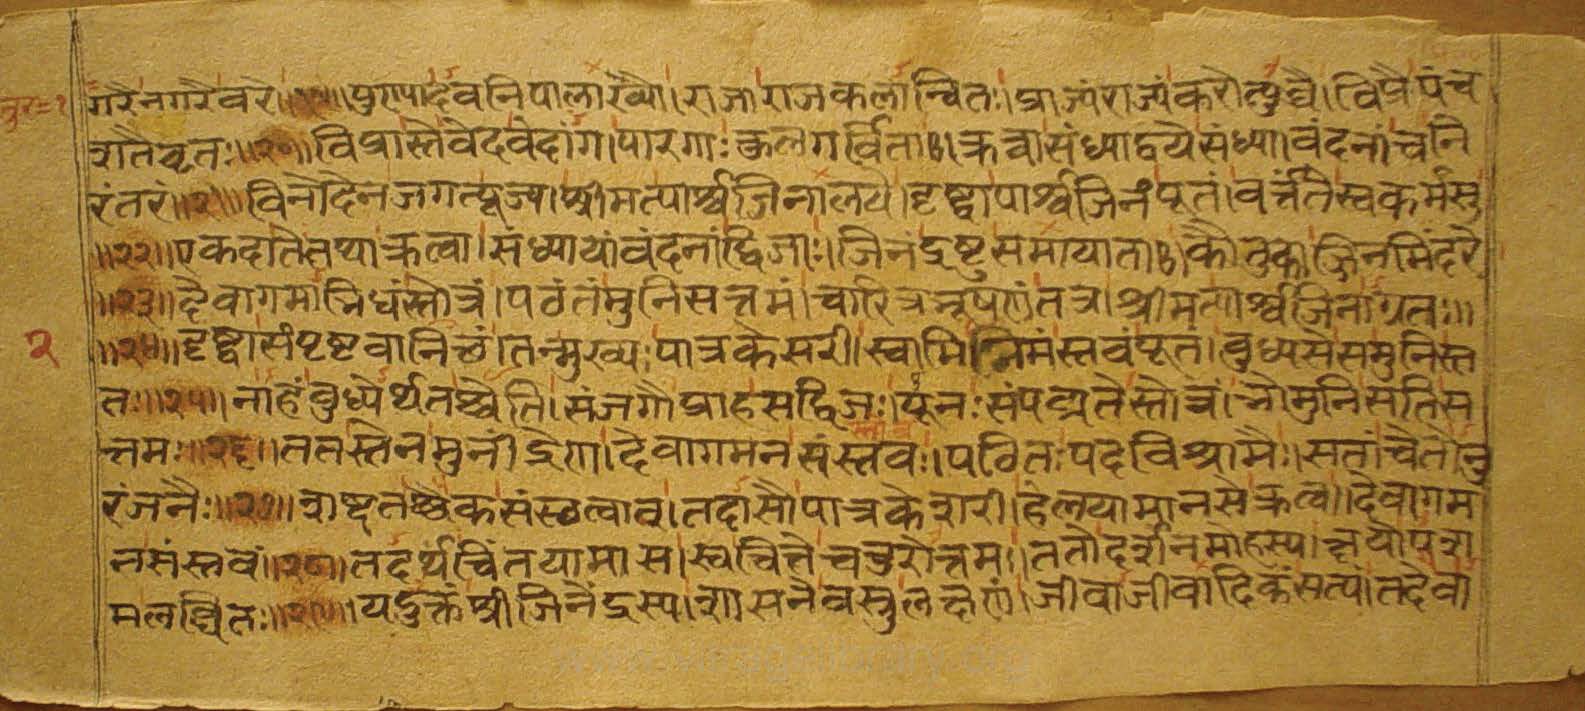 गरे नगरे वरे ॥१९॥ पुण्यादवनिपालाख्यो । राजा राजकलान्वितः । प्राज्यं राज्यं करोत्युच्चै । विप्रै पंच
शतैवृतः ॥२०॥ विप्रास्ते वेदवेदांग । पारगाः कुलगर्विताः । कृत्वा संध्याद्वये संध्या । वंदनां च नि
रंतरं ॥२१॥ विनोदेन जगत्पूज्य । श्रीमत्पार्श्वजिनालये । दृष्ट्वा पार्श्वजिनं पूतं । वर्त्तंते स्वकर्मसु
॥२२॥ एकदा ते तथा कृत्वा । संध्यायां वंदनां द्विजाः । जिनं द्रष्टु समायाताः । कौतुकाज्जिनमंदिरे
॥२३॥ देवागमाभिधं स्तोत्रं । पठंतं मुनिसत्तमं । चारित्रभूषणं तत्र । श्रीमत्पार्श्वजिनाग्रतः ॥
२
॥२४॥ दृष्ट्वा संपृष्टवानित्थं । तन्मुख्यः पात्रकेसरी । स्वामिन्निमं स्तवं पूतं । बुध्यसे स मुनिस्त
तः ॥२५॥ नाहं बुध्येर्थतश्चेति । संजगौ प्राह सद्विजः । पुनः संपठ्यते स्तोत्रं । भो मुनिसति स
त्तमः ॥२६॥ ततस्तेन मुनींद्रेण । देवागमनसंस्तवः । पठितः पदविश्रामैः । सतां चेतोनु
रंजनैः ॥२७॥ शब्दतश्चैकसंस्थत्वात् । तदासौ पात्रकेशरी । हेलया मानसे कृत्वा । देवागम
नसंस्तवं ॥२८॥ तदर्थं चिंतयामास । स्वचित्ते चतुरोत्तमः । ततो दर्शनमोहस्य । क्षयोपश
मलब्धितः ॥२९॥ यदुक्तं श्रीजिनेंद्रस्य । शासने वस्तुलक्षणं । जीवाजीवादिकं सत्यं । तदेवा
www.vitragvani.org